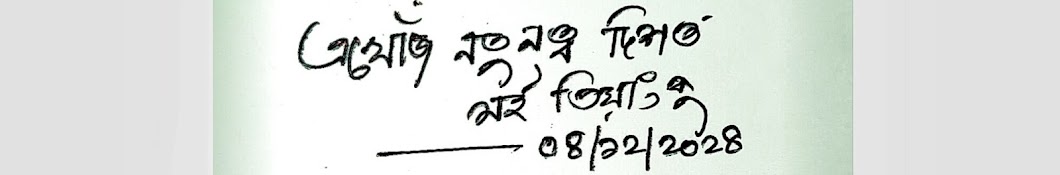 এখোঁজ নতুনত্ব দিশত
মই তিয়াংচু
০৪/১২/২০২৪